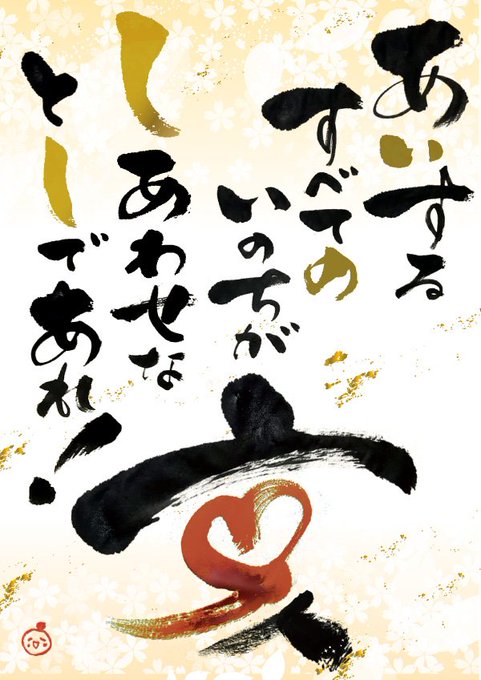 あいする
すべての
いのちが
しあわせな
としであれ!
亥